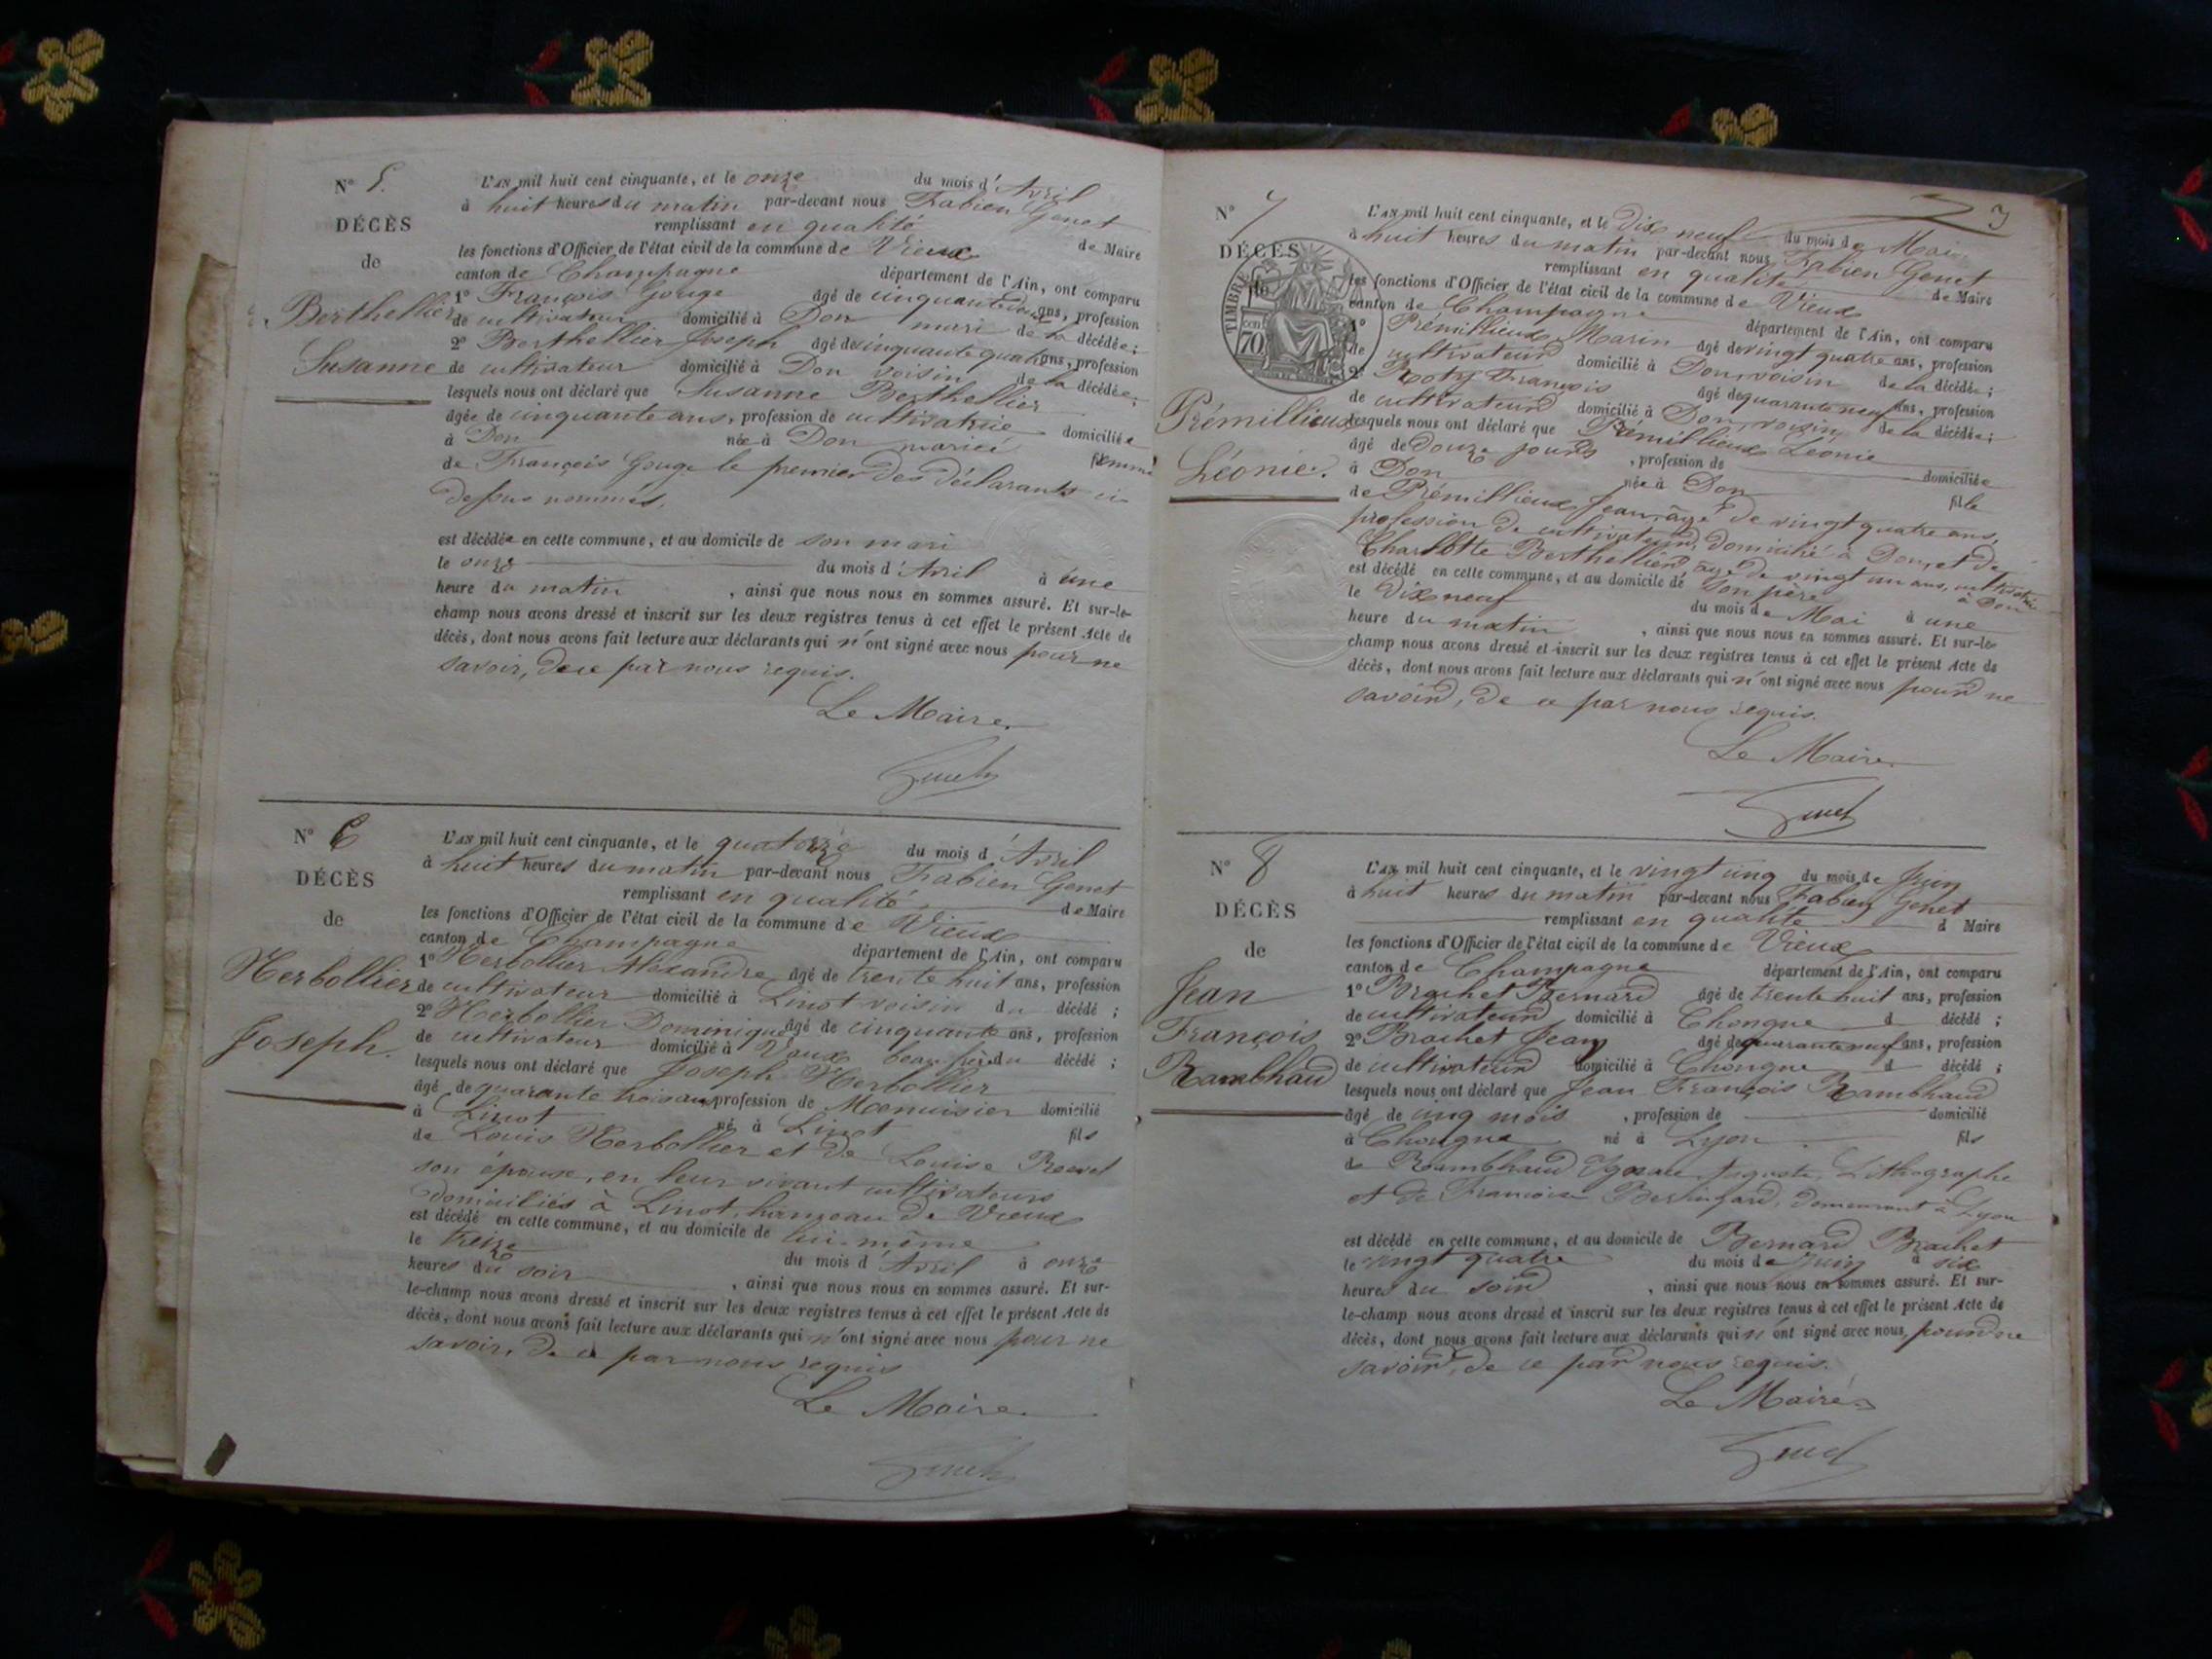 N° 5.
DÉCÈS
de
Berthellier
Susanne
L'AN mil huit cent cinquante, et le onze du mois d'Avril
à huit heures du matin par-devant nous Fabien Genet
remplissant en qualité de Maire
les fonctions d'Officier de l'état civil de la commune de Vieux
canton de Champagne département de l'Ain, ont comparu
1° François Gouge âgé de cinquante deux ans, profession
de cultivateur domicilié à Don mari de la décédée;
2° Berthellier Joseph âgé de cinquante quatre ans, profession
de cultivateur domicilié à Don voisin de la décédée;
lesquels nous ont déclaré que Susanne Berthellier
âgée de cinquante ans, profession de cultivatrice domiciliée
à Don née à Don mariée femme
de François Gouge le premier des déclarants ci-
dessus nommés,
est décédée en cette commune, et au domicile de son mari
le onze du mois d'Avril à une
heure du matin, ainsi que nous nous en sommes assuré. Et sur-le-
champ nous avons dressé et inscrit sur les deux registres tenus à cet effet le présent Acte de
décès, dont nous avons fait lecture aux déclarants qui n'ont signé avec nous pour ne
savoir, de ce par nous requis.
Le Maire.
Genet
N° 6
DÉCÈS
de
Herbollier
Joseph.
L'AN mil huit cent cinquante, et le quatorze du mois d'Avril
à huit heures du matin par-devant nous Fabien Genet
remplissant en qualité de Maire
les fonctions d'Officier de l'état civil de la commune de Vieux
canton de Champagne département de l'Ain, ont comparu
1° Herbollier Alexandre âgé de trente huit ans, profession
de cultivateur domicilié à Linot voisin du décédé;
2° Herbollier Dominique âgé de cinquante ans, profession
de cultivateur domicilié à Vaux beau frère du décédé;
lesquels nous ont déclaré que Joseph Herbollier
âgé de quarante trois ans profession de Menuisier domicilié
à Linot né à Linot fils
de Louis Herbollier et de Louise
son épouse, en leur vivant cultivateurs
domiciliés à Linot, hameau de Vieux
est décédé en cette commune, et au domicile de lui-même
le treize du mois d'Avril à onze
heures du soir, ainsi que nous nous en sommes assuré. Et sur-
le-champ nous avons dressé et inscrit sur les deux registres tenus à cet effet le présent Acte de
décès, dont nous avons fait lecture aux déclarants qui n'ont signé avec nous pour ne
savoir, de ce par nous requis
Le Maire.
Genet
3
N° 7
DÉCÈS
TIMBRE
70 cent
Prémillieux
Léonie.
L'AN mil huit cent cinquante, et le Dix neuf du mois de Mai
à huit heures du matin par-devant nous Fabien Genet
remplissant en qualité de Maire
les fonctions d'Officier de l'état civil de la commune de Vieux
canton de Champagne département de l'Ain, ont comparu
1° Prémillieux Marin âgé de vingt quatre ans, profession
de cultivateur domicilié à Don, voisin de la décédée;
2° Roty François âgé de quarante neuf ans, profession
de cultivateur domicilié à Don, voisin de la décédée;
lesquels nous ont déclaré que Prémillieux Léonie
âgé de douze jours, profession de domiciliée
à Don née à Don fille
de Prémillieux Jean, âgé de vingt quatre ans,
profession de cultivateur, domicilié à Don, et de
Charlotte Berthellier, âgé de vingt un ans, cultivatrice à Don
est décédé en cette commune, et au domicile de son père
le Dix neuf du mois de Mai à une
heure du matin, ainsi que nous nous en sommes assuré. Et sur-le-
champ nous avons dressé et inscrit sur les deux registres tenus à cet effet le présent Acte de
décès, dont nous avons fait lecture aux déclarants qui n'ont signé avec nous pour ne
savoir, de ce par nous requis.
Le Maire
Genet
N° 8
DÉCÈS
de
Jean
François
Rambhaud
L'AN mil huit cent cinquante, et le vingt cinq du mois de Juin
à huit heures du matin par-devant nous Fabien Genet
remplissant en qualité d Maire
les fonctions d'Officier de l'état civil de la commune de Vieux
canton de Champagne département de l'Ain, ont comparu
1° Brachet Bernard âgé de trente huit ans, profession
de cultivateur domicilié à Chongne d décédé;
2° Brachet Jean âgé de quarante neuf ans, profession
de cultivateur domicilié à Chongne d décédé;
lesquels nous ont déclaré que Jean François Rambhaud
âgé de cinq mois, profession de domicilié
à Chongne né à Lyon fils
de Rambhaud Ignace Auguste, Lithographe
et de Françoise demeurant à Lyon
est décédé en cette commune, et au domicile de Bernard Brachet
le vingt quatre du mois de Juin à six
heures du soir, ainsi que nous nous en sommes assuré. Et sur-
le-champ nous avons dressé et inscrit sur les deux registres tenus à cet effet le présent Acte de
décès, dont nous avons fait lecture aux déclarants qui n'ont signé avec nous, pour ne
savoir, de ce par nous requis.
Le Maire
Genet